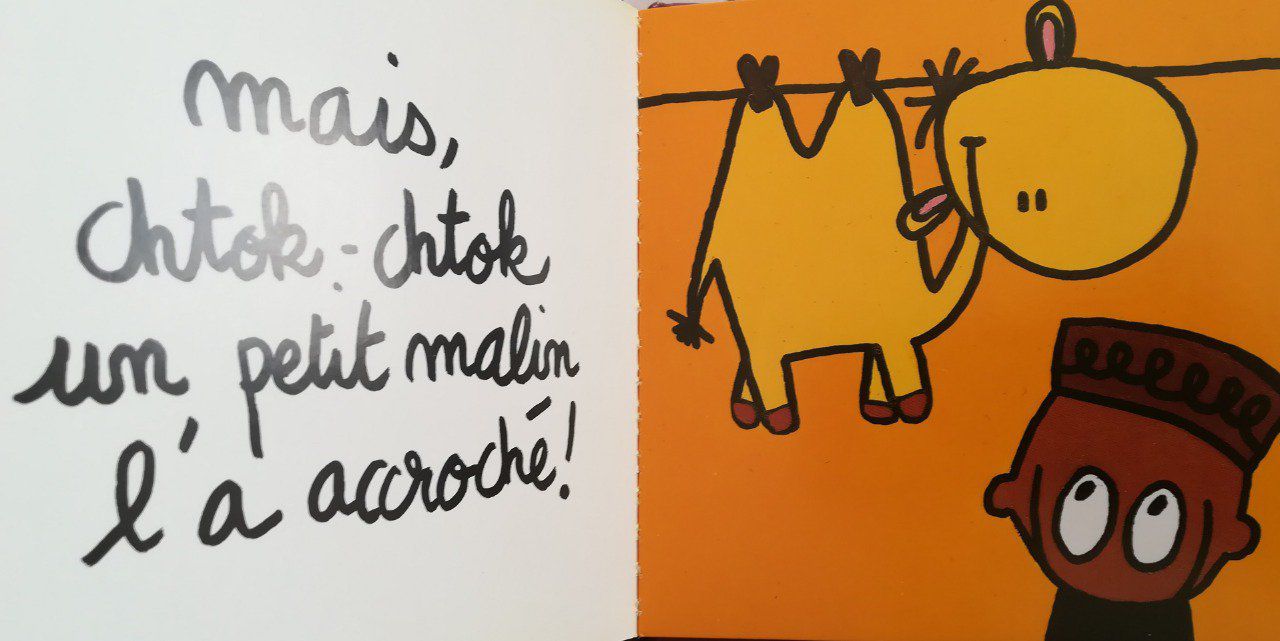 mais,
chtok-chtok
un petit malin
l'a accroché!